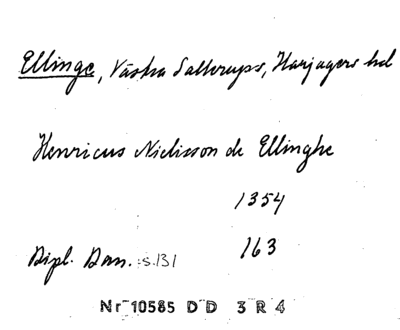 Ellinge, Västra Sallerups, Harjagers hd
Henricus Nielisson de Ellinghe
1354
Dipl. Dan. s.131 163
Nr 10585 D D 3 R 4